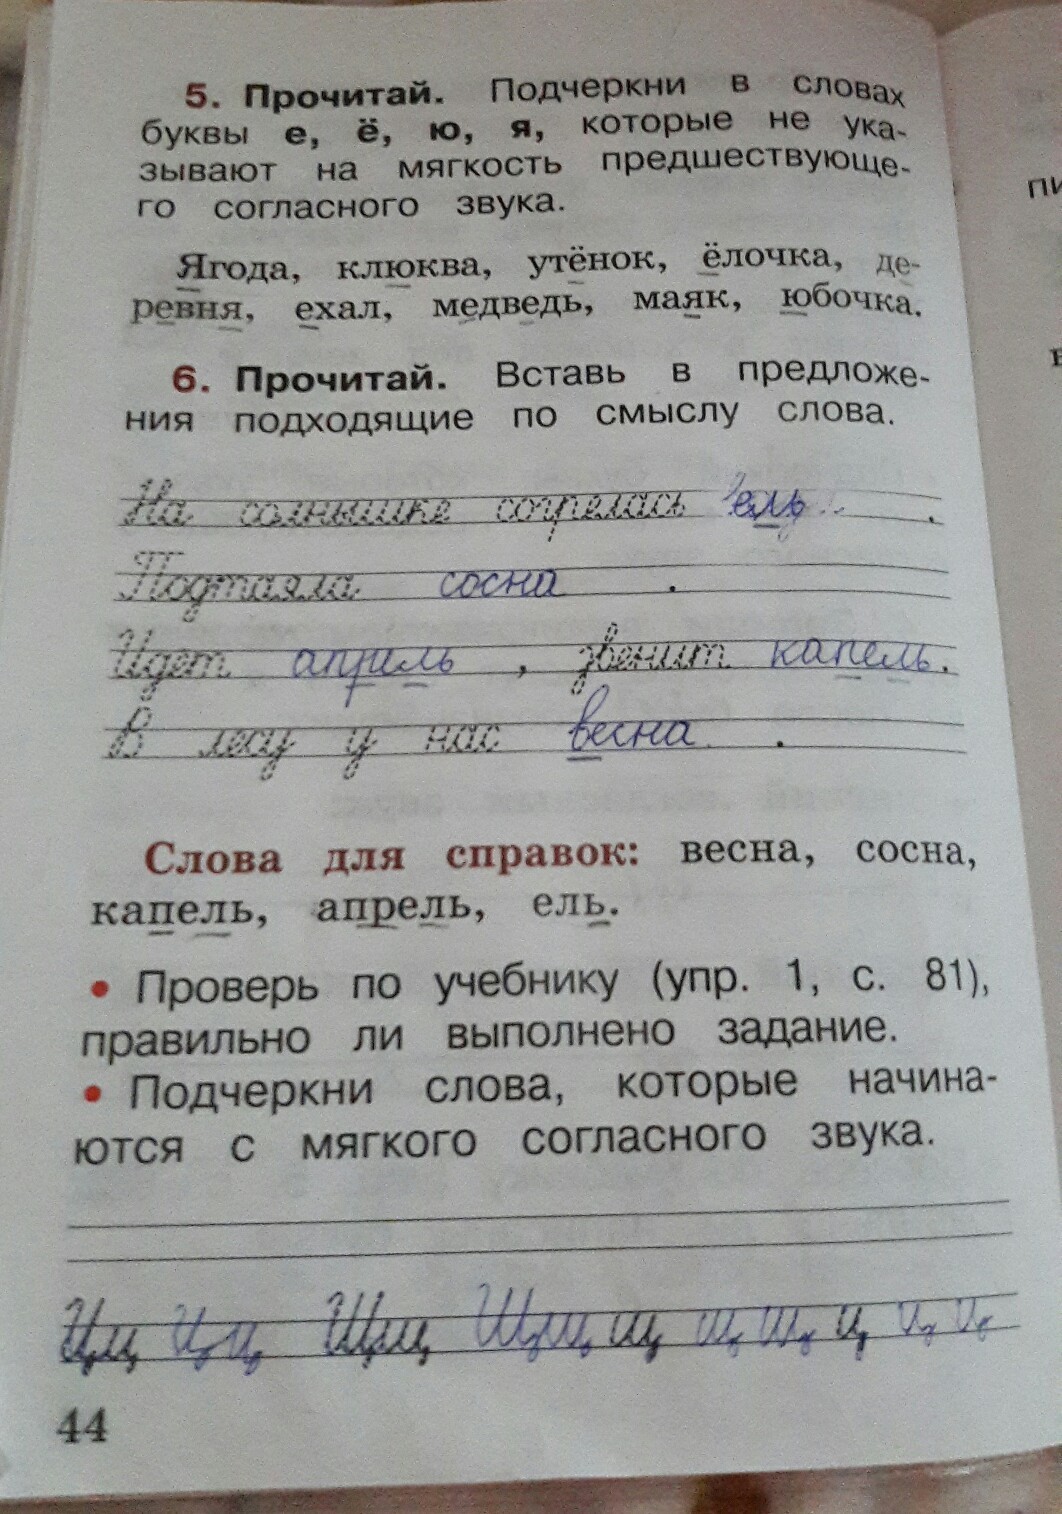 5. Прочитай. Подчеркни в словах
буквы е, ё, ю, я, которые не ука-
зывают на мягкость предшествующе-
го согласного звука.
Ягода, клюква, утёнок, ёлочка, де-
ревня, ехал, медведь, маяк, юбочка.
6. Прочитай. Вставь в предложе-
ния подходящие по смыслу слова.
На солнышке согрелась ель.
Подтаяла сосна.
Идет апрель, звенит капель.
В лесу у нас весна.
Слова для справок: весна, сосна,
капель, апрель, ель.
• Проверь по учебнику (упр. 1, с. 81),
правильно ли выполнено задание.
• Подчеркни слова, которые начина-
ются с мягкого согласного звука.
Цц Цц Щщ Щщ щ щ щ ц ц ц
44